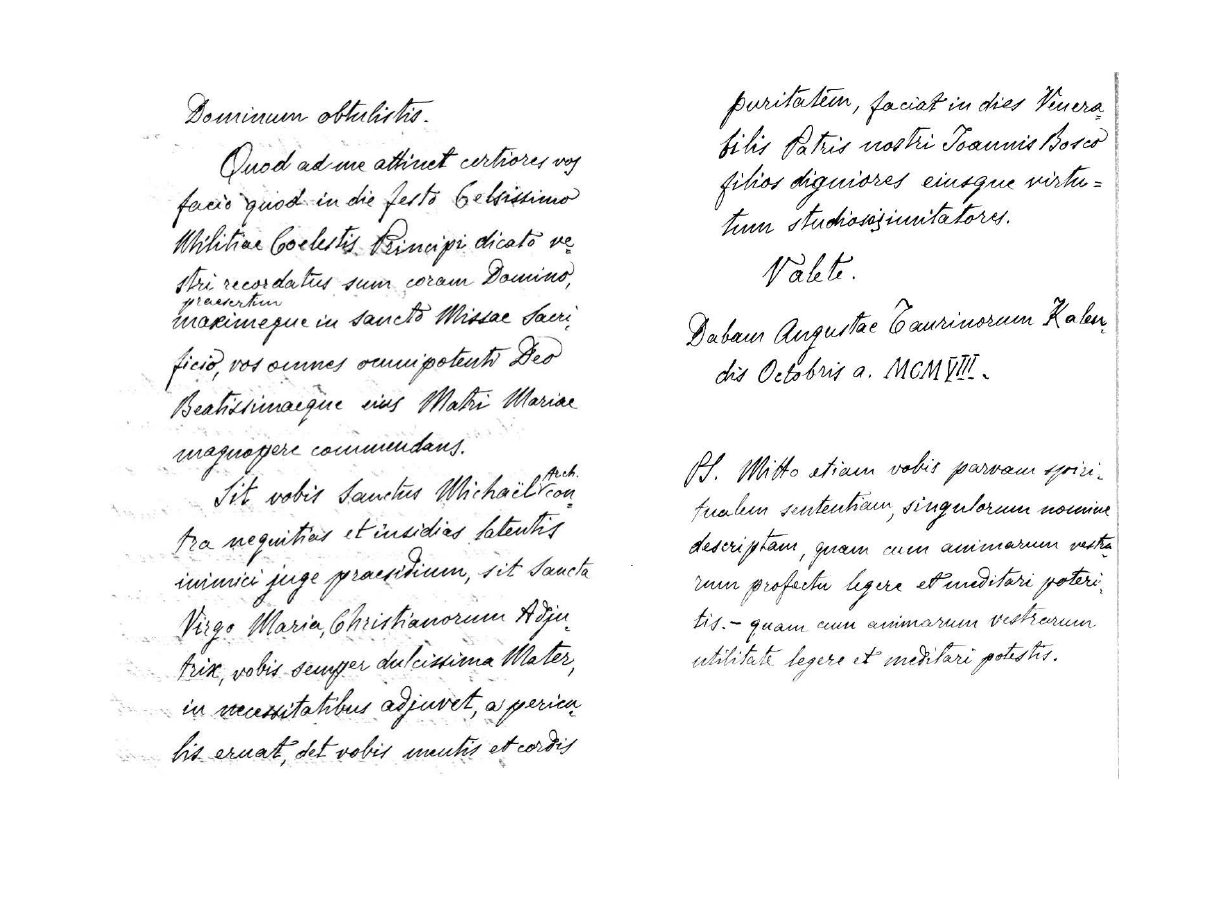 Dominum obtulistis.
Quod ad me attinet certiores vos
facio quod in die festo Celsissimo
Militiae Coelestis Principi dicato ve=
stri recordatus sum coram Domino,
praesertim
maximeque in sancto Missae Sacri-
ficio, vos omnes omnipotenti Deo
Beatissimaeque eius Matri Mariae
magnopere commendans.
Arch.
Sit vobis Sanctus Michaël con=
tra nequitias et insidias latentis
inimici juge praesidium, sit Sancta
Virgo Maria, Christianorum Adju-
trix, vobis semper dulcissima Mater,
in necessitatibus adjuvet, a pericu-
lis eruat, det vobis mentis et cordis
puritatem, faciat in dies Venera=
bilis Patris nostri Joannis Bosco
filios digniores eiusque virtu=
tum studiosos imitatores.
Valete.
Dabam Augustae Taurinorum Kalen-
dis Octobris a. MCMVIII.
PS. Mitto etiam vobis parvam spiri-
tualem sententiam, singulorum nomine
descriptam, quam cum animarum vestra-
rum profectu legere et meditari poteri-
tis. - quam cum animarum vestrarum
utilitate legere et meditari potestis.